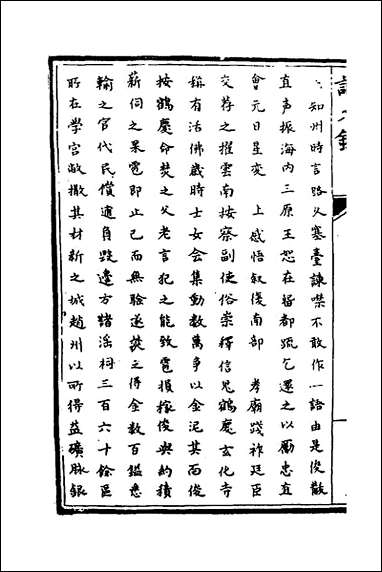 知州時言路久塞臺諫噤不敢作一語由是俊散
直声振海内三原王恕在留都疏乞還之以勵忠直
會元日星变　上感悟叙復南部　孝廟踐祚廷臣
交荐之擢雲南按察副使俗崇釋信鬼鶴慶玄化寺
稱有活佛歲時士女会集動数萬争以金泥其面俊
按鶴慶命焚之父老言犯之能致雹損稼俊與約積
薪伺之果雹即止已而無驗遂焚之得金数百鎰悉
輸之官代民償逋負毀邊方諸淫祠三百六十餘區
所在學宫敝撤其材新之城趙州以所得益礦脉銀